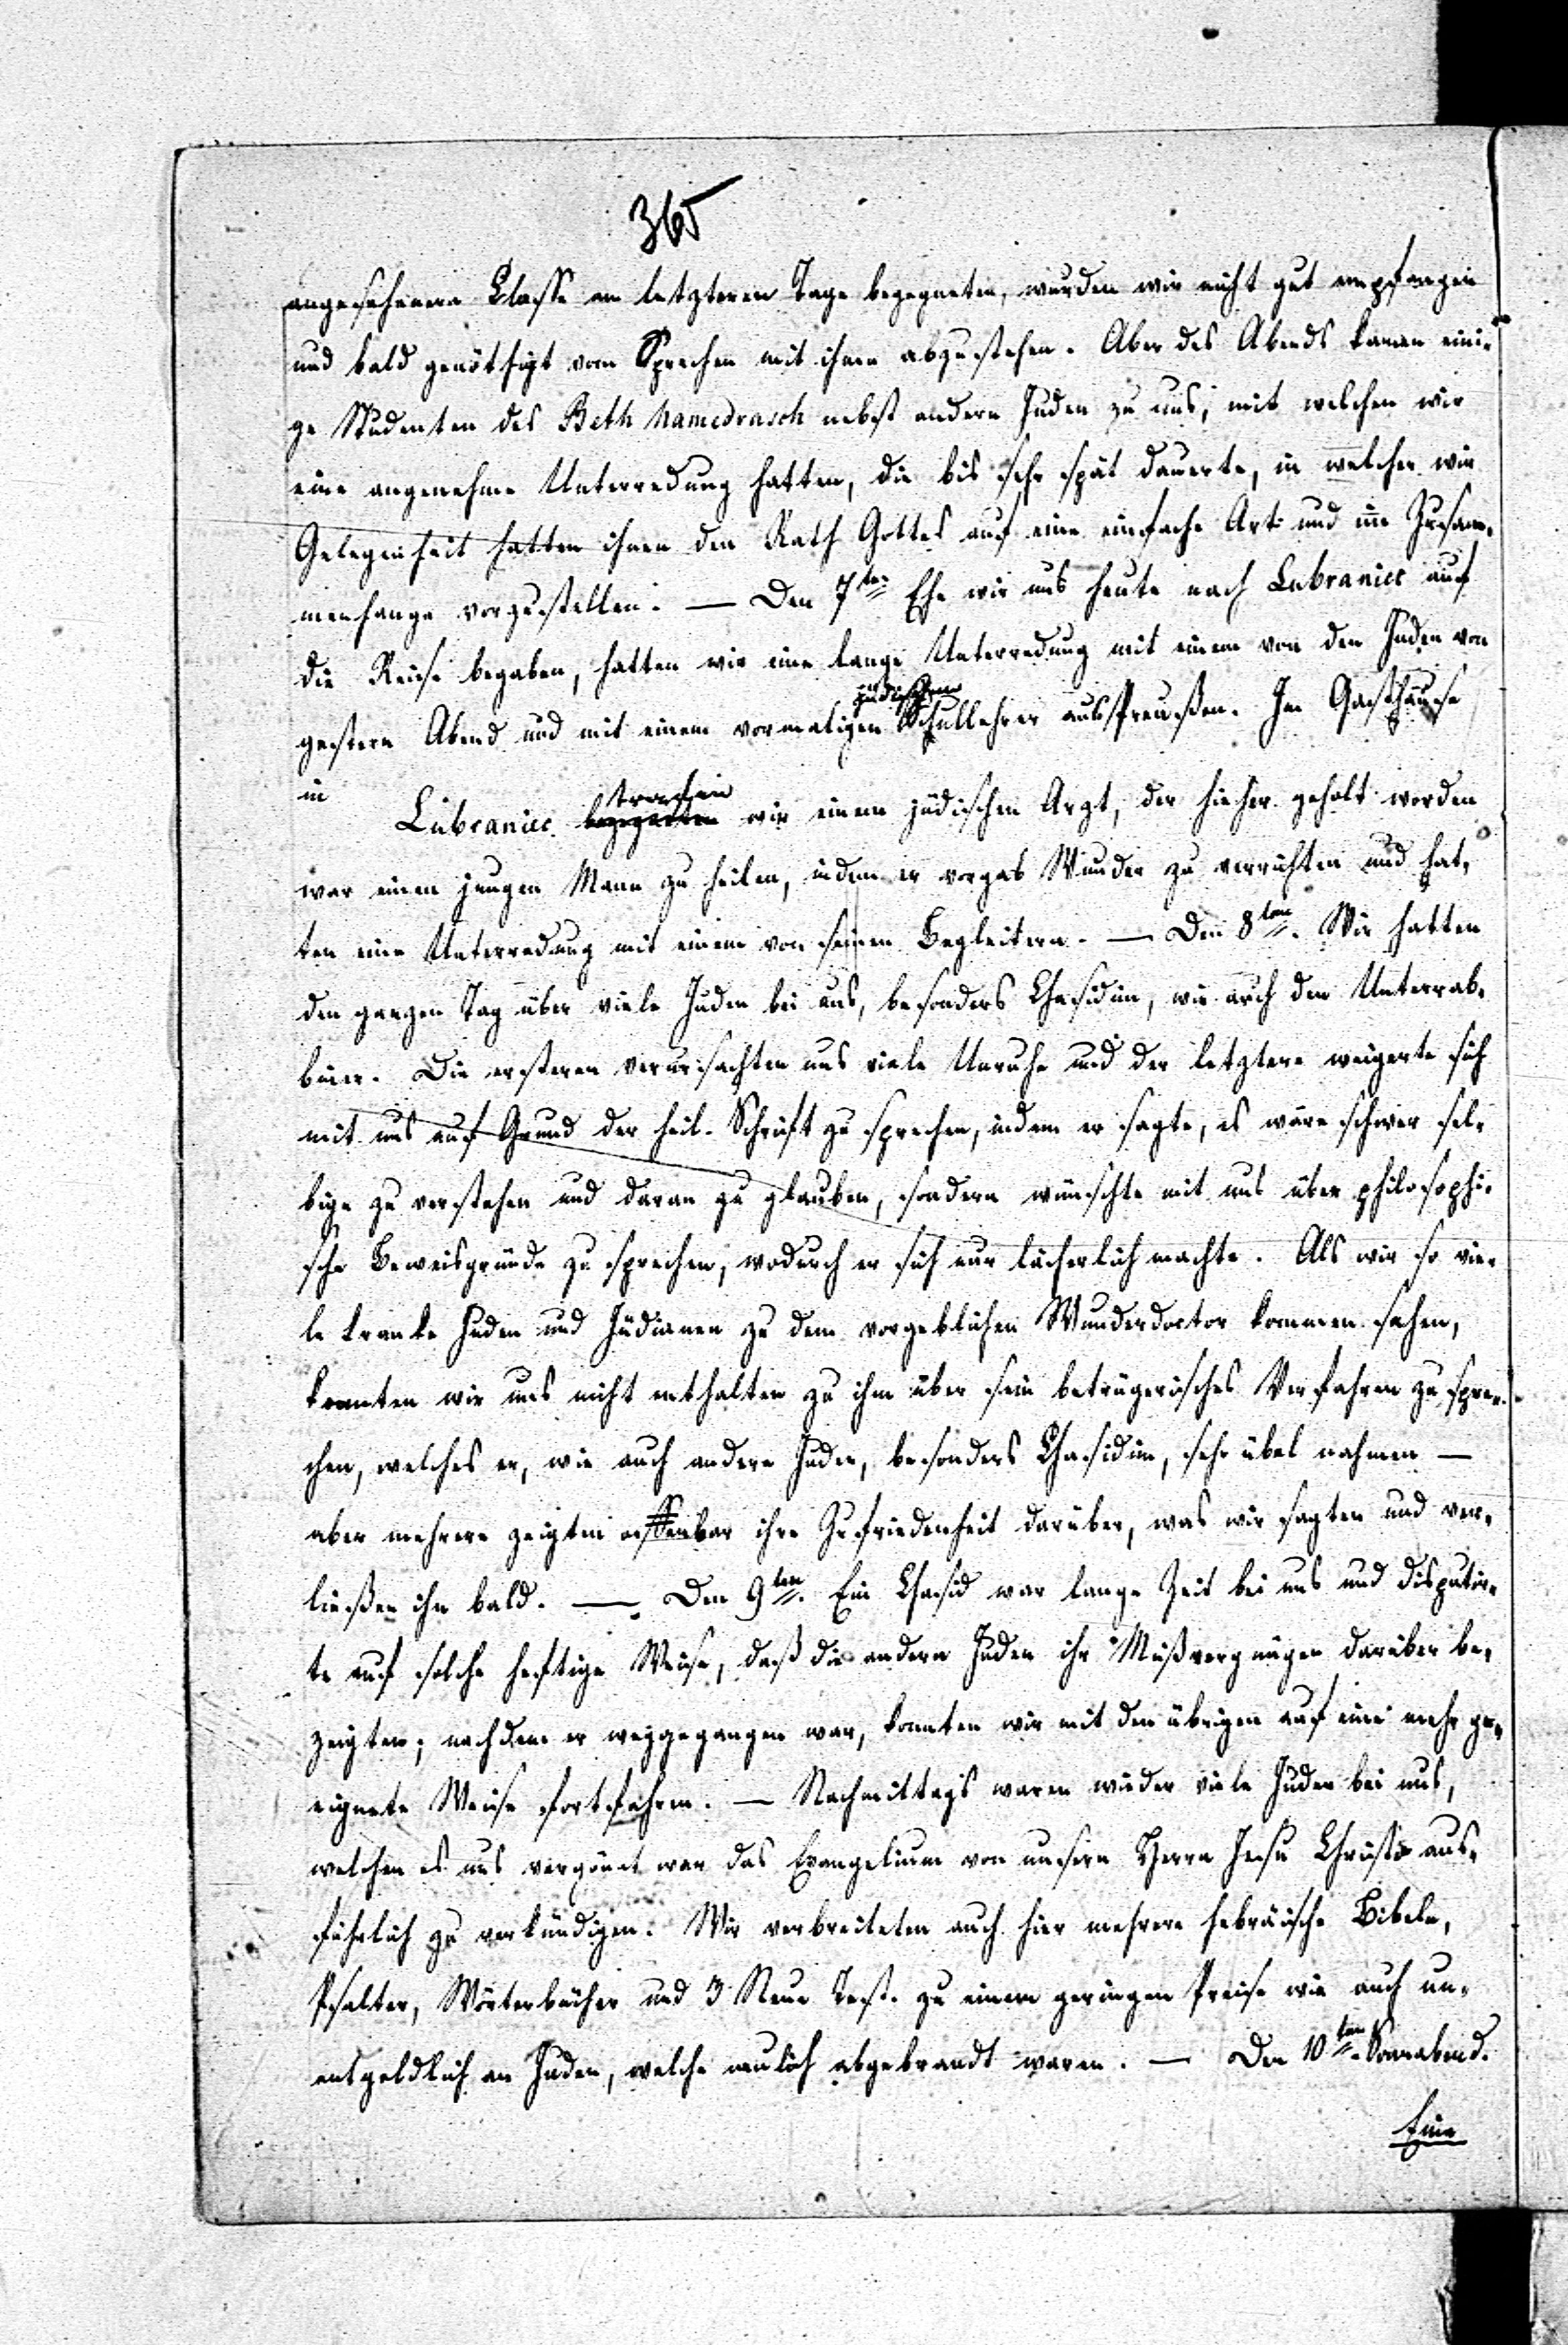 365
angesehenern Classe am letzteren Tage begegneten, wurden wir nicht gut empfangen
und bald genöthigt vom Sprechen mit ihnen abzustehen. Aber des Abends kamen eini-
ge Studenten des Beth hamedrasch nebst andern Juden zu uns, mit welchen wir
eine angenehme Unterredung hatten, die bis sehr spät dauerte, in welcher wir
Gelegenheit hatten ihnen den Rath Gottes auf eine einfache Art und im Zusam-
menhange vorzustellen. — Den 7ten Ehe wir uns heute nach Lubraniec auf
die Reise begaben, hatten wir eine lange Unterredung mit einem von den Juden von
gestern Abend und mit einem vormaligen jüdischen Schullehrer aus Preußen. Im Gasthause
in Lubraniec begegneten trafen wir einen jüdischen Arzt, der hieher geholt worden
war einen jungen Mann zu heilen, indem er vorgab Wunder zu verrichten und hat-
ten eine Unterredung mit einem von seinen Begleitern. — Den 8ten. Wir hatten
den ganzen Tag über viele Juden bei uns, besonders Chasidim, wie auch den Unterrab-
biner. Die ersteren verursachten uns viele Unruhe und der letztere weigerte sich
mit uns auf Grund der heil. Schrift zu sprechen, indem er sagte, es wäre schwer sel-
bige zu verstehen und daran zu glauben, sondern wünschte mit uns über philosophi-
sche Beweisgründe zu sprechen, wodurch er sich nur lächerlich machte. Als wir so vie-
le kranke Juden und Jüdinnen zu dem vorgeblichen Wunderdoctor kommen sahen,
konnten wir uns nicht enthalten zu ihm über sein betrügerisches Verfahren zu spre-
chen, welches er, wie auch andere Juden, besonders Chasidim, sehr übel nahmen —
aber mehrere zeigten offenbar ihre Zufriedenheit darüber, was wir sagten und ver-
ließen ihn bald. — Den 9ten. Ein Chasid war lange Zeit bei uns und disputir-
te auf solche heftige Weise, daß die andern Juden ihr Mißvergnügen darüber be-
zeigten; nachdem er weggegangen war, konnten wir mit den übrigen auf eine mehr ge-
eignete Weise fortfahren. — Nachmittags waren wieder viele Juden bei uns,
welchen es uns vergönnt war das Evangelium von unserm Herrn Jesu Christo aus-
führlich zu verkündigen. Wir verbreiteten auch hier mehrere hebräische Bibeln,
Psalter, Wörterbücher und 3 Neue Test. zu einem geringen Preise wie auch un-
entgeldlich an Juden, welche neulich abgebrandt waren. — Den 10ten. Sonnabend.
Eine